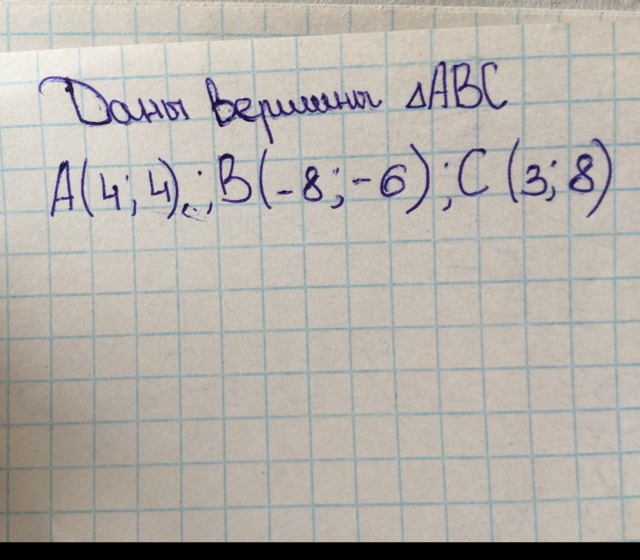 Даны вершины ΔABC
A(4; 4).; B(-8; -6); C(3; 8)